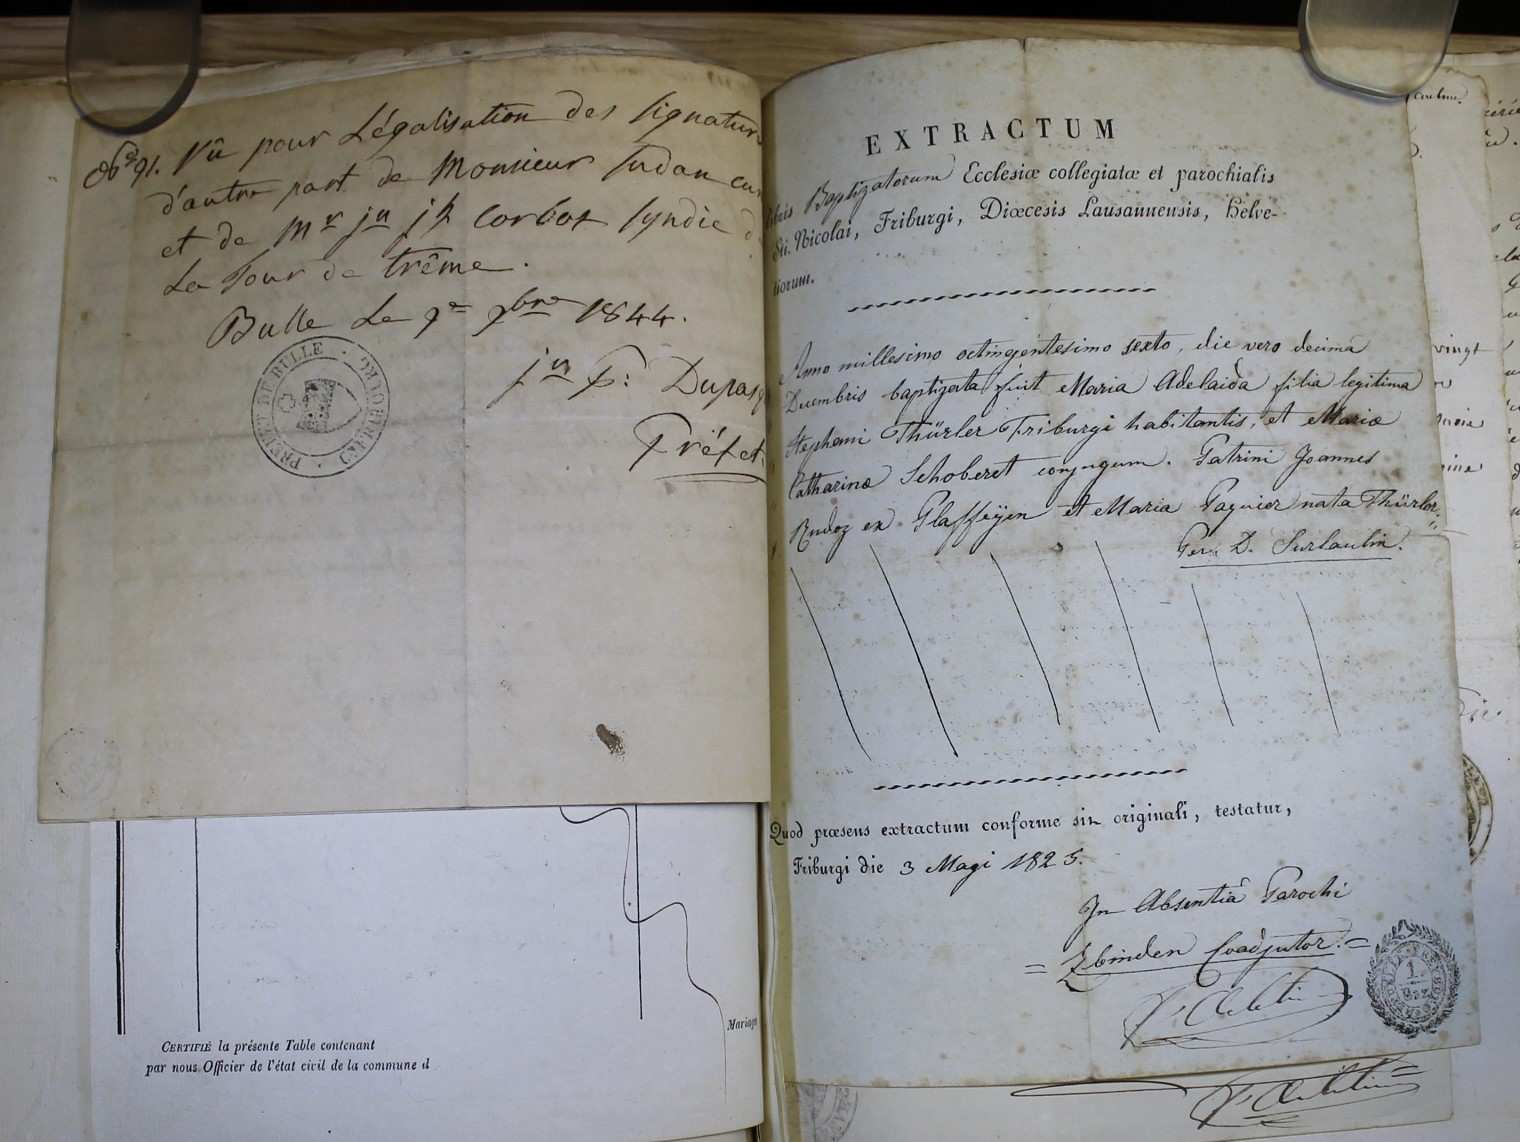 Vû pour Légalisation des signatur
d'autre part de Monsieur Sudan cu
et de Mr jn jh Corboz syndic d
La Tour de trême.
Bulle Le 9bre 1844.
PRÉFET DE BULLE
jn Dupasq
Préfet.
CERTIFIÉ la présente Table contenant
par nous Officier de l'état civil de la commune d
Mariages
EXTRACTUM
libris Baptizatorum Ecclesiæ collegiatæ et parochialis
Sti. Nicolai, Friburgi, Diœcesis Lausannensis, Helve-
tiorum.
Anno millesimo octingentesimo sexto, die vero decima
Decembris baptizata fuit Maria Adelaida filia legitima
Stephani Thürler Friburgi habitantis, et Mariæ
Catharinæ Schoberet conjugum. Patrini Joannes
Rudoz ex Plaffeyen et Maria Paquier nata Thürler.
Per D. Surlaulin.
Quod præsens extractum conforme sit originali, testatur,
Friburgi die 3 Magi 1825.
In Absentiâ Parochi
= Zbinden Coadjutor. =
1
Baz
vingt